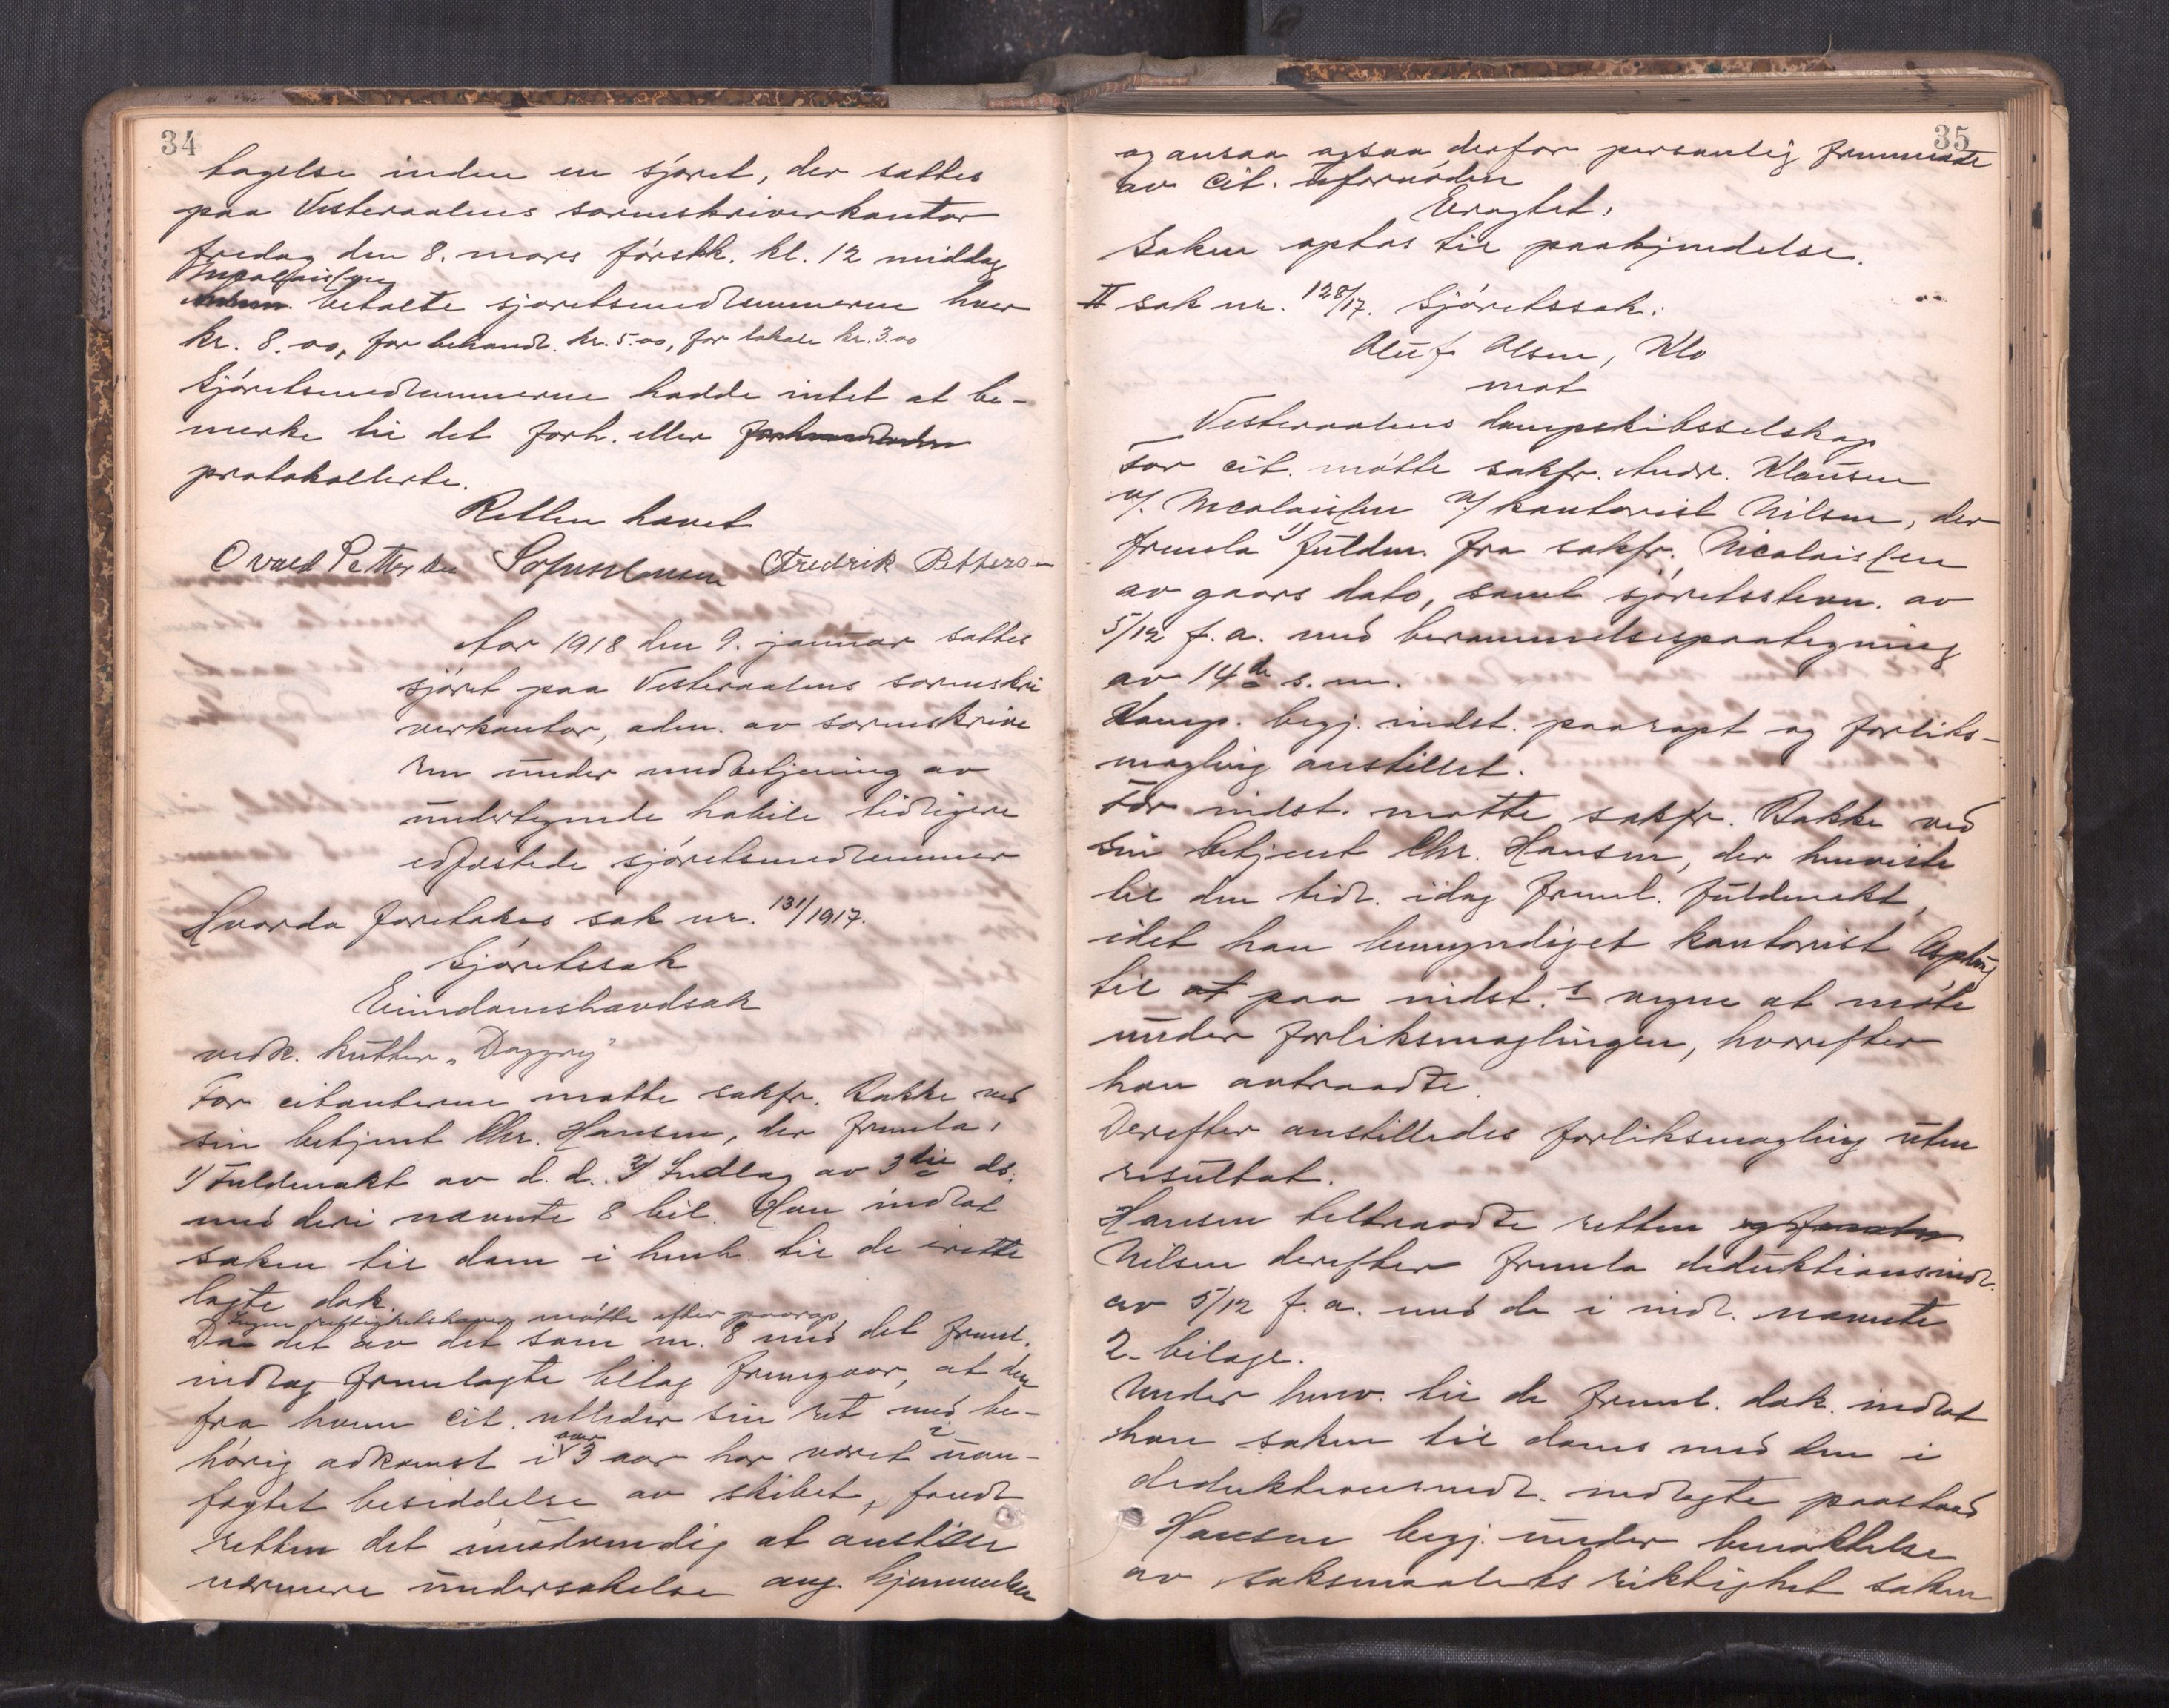 34
tagelse inden en sjøret, der sættes
paa Vesteraalens sorenskriverkontor
fredag den 8. mars førstk. kl. 12 middag
Nicolaissen
betalte sjøretsmedlemmerne hver
kr. 8.00, for behandl. kr. 5.00, for lokale kr. 3.00
Sjøretsmedlemmerne hadde intet at be-
merke til det forh. eller
protokollerte.
Retten hævet
Ovald Pettersen Fredrik Pettersen
Aar 1918 den 9. januar sattes
sjøret paa Vesteraalens sorenskri
verkontor, adm. av sorenskrive
ren under medbetjening av
undertegnede habile tidligere
edfæstede sjøretsmedlemmer
Hvorda foretokes sak nr. 131/1917.
Sjøretssak
Eiendomshævdsak
vedk. kutter "Daggry"
For citanterne møtte sakfr. Bakke ved
sin betjent Chr. Hansen, der fremla:
1/ Fuldmakt av d. d. 2/ Indlæg av 3die ds.
med deri nævnte 8 bil. Han indlot
saken til dom i henh. til de irette
lagte dok.
Ingen rettighetshaver møtte efter paarop.
Da det av det som nr. 8 med det freml.
indlæg fremlagte bilag fremgaar, at den
fra hvem cit. utleder sin ret med be-
hørig adkomst i over 3 aar har været i uan-
fægtet besiddelse av skibet, fandt
retten det unødvendig at anstille
nærmere undersøkelse ang. hjemmelen
35
og ansaa ogsaa derfor personlig fremmøte
av cit. ufornøden
Eragtet:
Saken optas til paakjendelse.
II sak nr. 128/17. Sjøretssak:
Oluf Olsen, Klo
mot
Vesteraalens dampskibsselskap
For cit. møtte sakfr. Andr. Klausen
v/ Nicolaissen v/ kontorist Nilsen, der
fremla 1/ fuldm. fra sakfr. Nicolaissen
av gaars dato, samt sjøretsstevn. av
5/12 f. a. med berammelsespaategning
av 14de s. m.
Komp. begj. indst. paaropt og forliks-
mægling anstillet.
For indst. møtte sakfr. Bakke ved
sin betjent Chr. Hansen, der henviste
til den tidl. idag freml. fuldmakt,
idet han bemyndiget kontorist
til at paa indst.s vegne at møte
under forliksmæglingen, hvorefter
han avtraadte.
Derefter anstilledes forliksmægling uten
resultat.
Hansen tiltraadte retten og fremla
Nilsen derefter fremla deduktionsindl.
av 5/12 f. a. med de i indl. nævnte
2 bilage.
Under henv. til de freml. dok. indlot
han saken til doms med den i
deduktionsindl. nedlagte paastand
Hansen begj. under benektelse
av saksmaalets riktighet saken